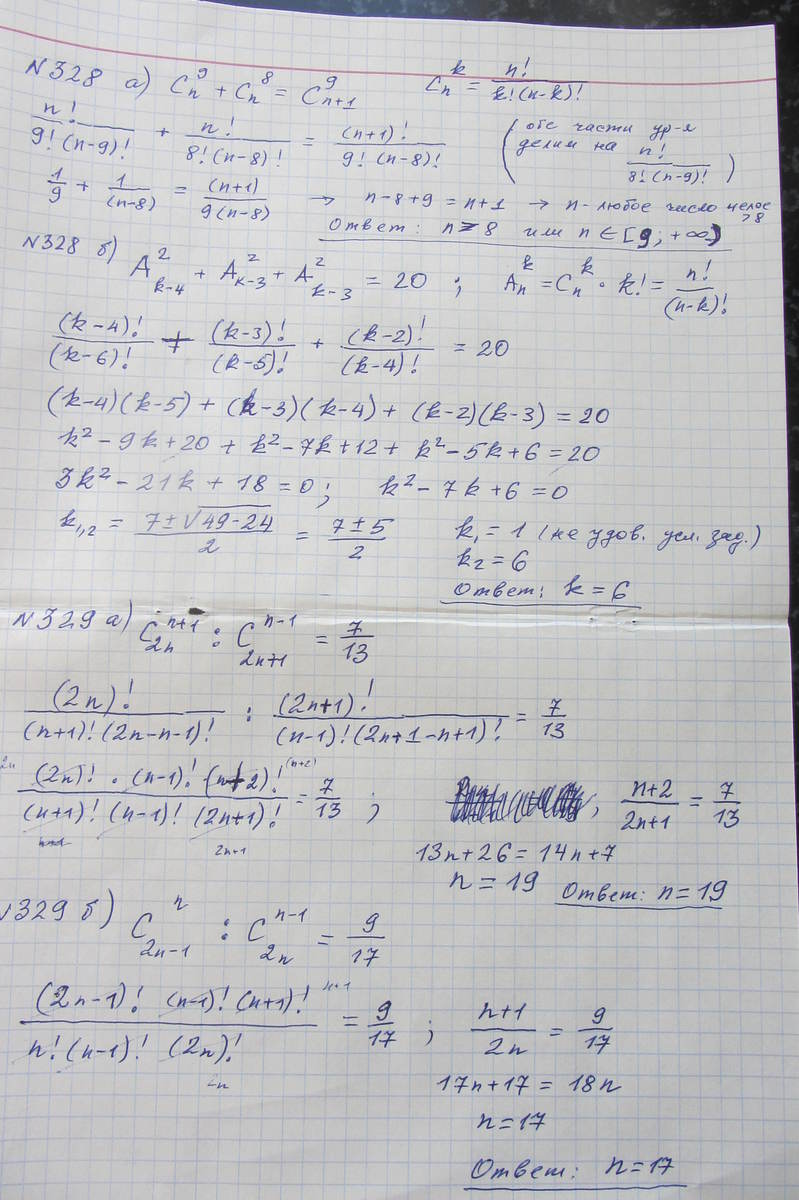 N328 а) C_n^9 + C_n^8 = C_{n+1}^9   C_n^k = n!/(k!(n-k)!)
n!/(9!(n-9)!) + n!/(8!(n-8)!) = (n+1)!/(9!(n-8)!)   (обе части ур-я делим на n!/(8!(n-9)!))
1/9 + 1/(n-8) = (n+1)/(9(n-8)) → n-8+9 = n+1 → n - любое число целое >8
Ответ: n>8 или n∈[9; +∞)
N328 б) A_{k-4}^2 + A_{k-3}^2 + A_{k-3}^2 = 20 ; A_n^k = C_n^k · k! = n!/(n-k)!
(k-4)!/(k-6)! + (k-3)!/(k-5)! + (k-2)!/(k-4)! = 20
(k-4)(k-5) + (k-3)(k-4) + (k-2)(k-3) = 20
k²-9k+20 + k²-7k+12 + k²-5k+6 = 20
3k²-21k+18=0; k²-7k+6=0
k_{1,2} = (7±√(49-24))/2 = (7±5)/2   k₁=1 (не удов. усл. зад.)
k₂=6
Ответ: k=6
N329 а) C_{2n}^{n+1} : C_{2n+1}^{n-1} = 7/13
(2n)!/((n+1)!(2n-n-1)!) : (2n+1)!/((n-1)!(2n+1-n+1)!) = 7/13
(2n)!·(n-1)!(n+2)!/((n+1)!(n-1)!(2n+1)!) = 7/13 ; (n+2)/(2n+1) = 7/13
(n+2)
2n+1
13n+26 = 14n+7
n=19 Ответ: n=19
N329 б) C_{2n-1}^n : C_{2n}^{n-1} = 9/17
(2n-1)! (n-1)! (n+1)!/(n!(n-1)!(2n)!) = 9/17 ; (n+1)/2n = 9/17
n+1
2n
17n+17 = 18n
n=17
Ответ: n=17